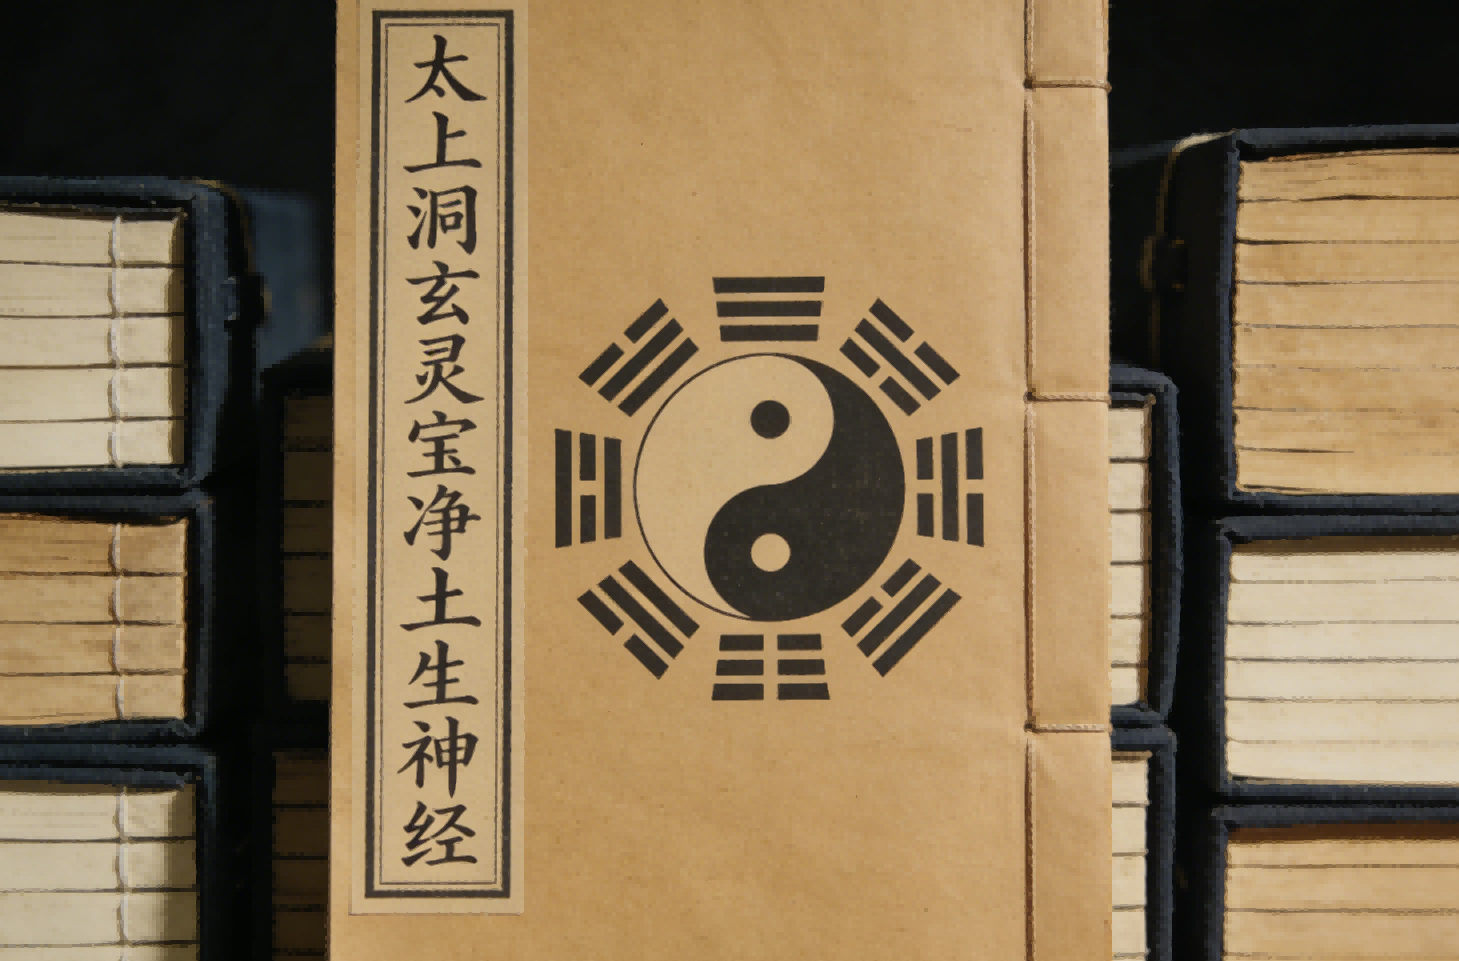 太上洞玄灵宝净土生神经